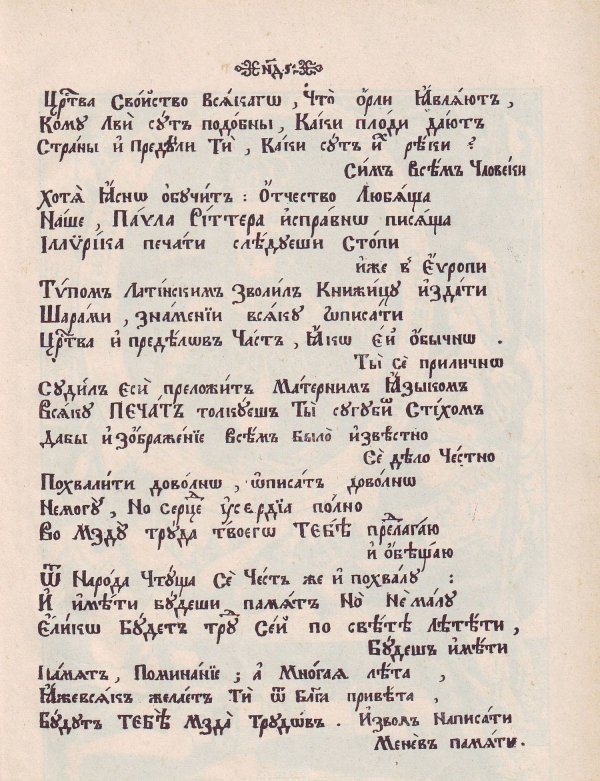 НД҃
Црⷭ҇тва Сво́йство вся́кагѡ , Что̀ ѻ҆рли Ꙗ҆вля́ютъ ,
Кому Лвѝ су́тъ подо́бны , Ка́ки плодѝ даю́тъ
Стра́ны и҆ Преде́ли Тѝ , Ка́ки су́тъ и҆̀ рѣ́ки ?
Си́мъ всѣ́мъ Члове́ки
Хотѧ̀ Ꙗ҆́снѡ ѻ҆бучи́тъ : Ѻ҆́тчество Любѧ́ща
На́ше , Па́ѵла Рі́ттера и҆спра́внѡ писѧ́ща
Іллѷрі́ка печа́ти слѣ́дуеши Стопѝ
и҆́же в̾ Еѵро́пи
Тѵ́помъ Лати́нскимъ зволи́лъ Кни́жицу и҆зда́ти
Ша́рами , зна́менїи всѧ́ку ѡ҆писа́ти
Црⷭ҇тва и҆ преде́лѡвъ Ча́стъ , Ꙗ҆́кѡ е҆́й ѻ҆бы́чнѡ .
Ты̀ сѐ прили́чнѡ
Суди́лъ е҆сѝ преложи́тъ Ма́тернимъ Ꙗ҆зы́комъ
Всѧ́ку ПЕЧА́ТЪ толку́ешъ Ты̀ сугу́бый Сті́хомъ
Дабы̀ и҆зѻбраже́нїе всѣ́мъ было̀ и҆звѣ́стно
Сѐ дѣ́ло Че́стно
Похвали́ти дово́лнѡ , ѡ҆писа́тъ дово́лнѡ
Немогу̀ , Но се́рце ᲂу҆се́рдїа по́лно
Во Мзду̀ тру́да твоегѡ̀ ТЕБѢ̀ предлага́ю
и҆ ѻ҆бѣща́ю
Ѿ Наро́да Чту́ща Сѐ Че́сть же и҆ похва́лу :
И҆ и҆мѣ́ти бу́деши па́мѧтъ Но̀ Нема́лу
Е҆ли́кѡ Бу́детъ тру́дъ Се́й по свѣ́тѣ Лѣтѣ́ти ,
Бу́дешъ и҆мѣ́ти
Па́мѧтъ , Помина́нїе ; а҆̀ Мно́гая лѣ́та ,
Ꙗ҆́жевсѧ́къ жела́етъ Тѝ ѿ Бл҃га приве́та ,
Бу́дутъ ТЕБѢ̀ Мзда̀ Трудѡ́въ . И҆зво́лъ Написа́ти
Менѐвъ па́мѧти .